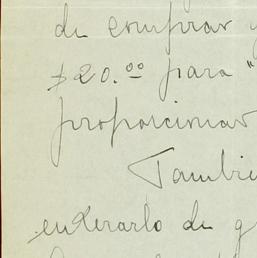 de comprar
$20.00 para "
proporcionar
Tambie
enterarlo de q